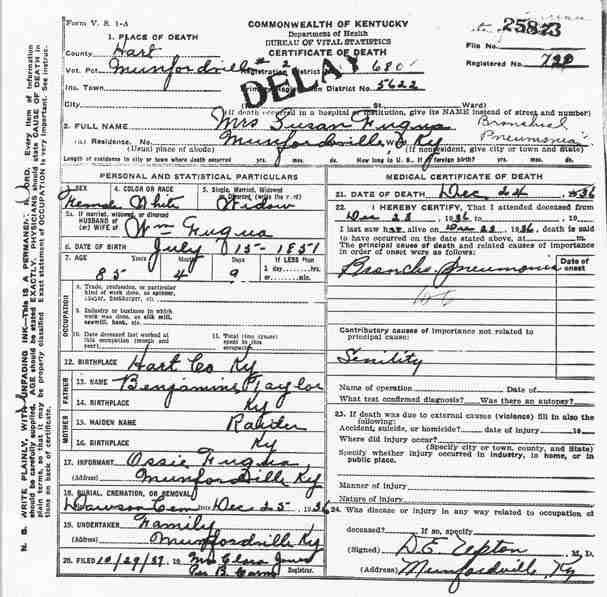 Form V. S. 1-A
COMMONWEALTH OF KENTUCKY
Department of Health
BUREAU OF VITAL STATISTICS
CERTIFICATE OF DEATH
File No. 25873
Registered No.
1. PLACE OF DEATH
County Hart
Vot. Pct. Munfordville # 2
Registration District No. 680
DELAY
Inc. Town
Primary Registration District No. 5622
City
St. Ward)
(If death occurred in a hospital or institution, give its NAME instead of street and number)
2. FULL NAME Mrs Susan Fuqua
Bronchial Pneumonia
(a) Residence. No. Munfordville Ky
(Usual place of abode)
(If nonresident, give city or town and State)
Length of residence in city or town where death occurred yrs. mos. ds. How long in U. S., if of foreign birth? yrs. mos. ds.
PERSONAL AND STATISTICAL PARTICULARS
3. SEX Female
4. COLOR OR RACE White
5. Single, Married, Widowed, Divorced (write the word) Widow
5a. If married, widowed, or divorced
HUSBAND of
(or) WIFE of Wm Fuqua
6. DATE OF BIRTH July 15 - 1851
7. AGE Years Months Days If LESS than
85 4 9 1 day, hrs. or min.
OCCUPATION
8. Trade, profession, or particular kind of work done, as spinner, sawyer, bookkeeper, etc.
9. Industry or business in which work was done, as silk mill, sawmill, bank, etc.
10. Date deceased last worked at this occupation (month and year)
11. Total time (years) spent in this occupation
12. BIRTHPLACE Hart Co Ky
FATHER
13. NAME Benjamine Taylor
14. BIRTHPLACE Ky
MOTHER
15. MAIDEN NAME
16. BIRTHPLACE Ky
17. INFORMANT Ossie Fuqua
(Address) Munfordville Ky
18. BURIAL, CREMATION, OR REMOVAL
Dawson Cem Dec 25 - 1936
19. UNDERTAKER Family
(Address) Munfordville Ky
20. FILED 10/29/37 19 Mrs Clara Jones
Registrar.
MEDICAL CERTIFICATE OF DEATH
21. DATE OF DEATH Dec 24 1936
22. I HEREBY CERTIFY, That I attended deceased from
Dec 23 1936 to 19
I last saw her alive on Dec 23 1936, death is said
to have occurred on the date stated above, at m.
The principal cause of death and related causes of importance
in order of onset were as follows:
Date of onset
Broncho Pneumonia
Contributory causes of importance not related to
principal cause:
Senility
Name of operation Date of
What test confirmed diagnosis? Was there an autopsy?
23. If death was due to external causes (violence) fill in also the
following:
Accident, suicide, or homicide? date of injury 19
Where did injury occur?
(Specify city or town, county, and State)
Specify whether injury occurred in industry, in home, or in
public place.
Manner of injury
Nature of injury
24. Was disease or injury in any way related to occupation of
deceased? If so, specify
(Signed) D.E. Upton, M. D.
(Address) Munfordville, Ky